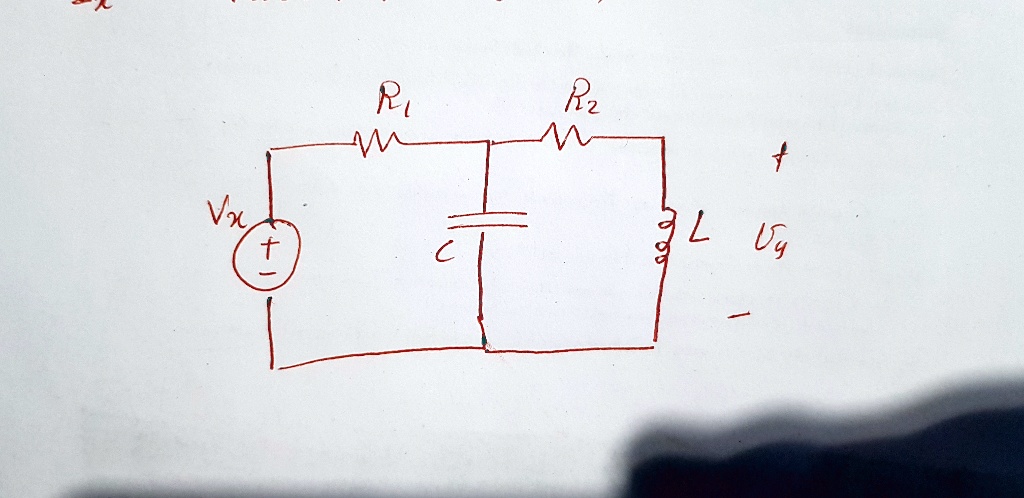 R₁ R₂
+
Vx
+
C L Vy
-
-